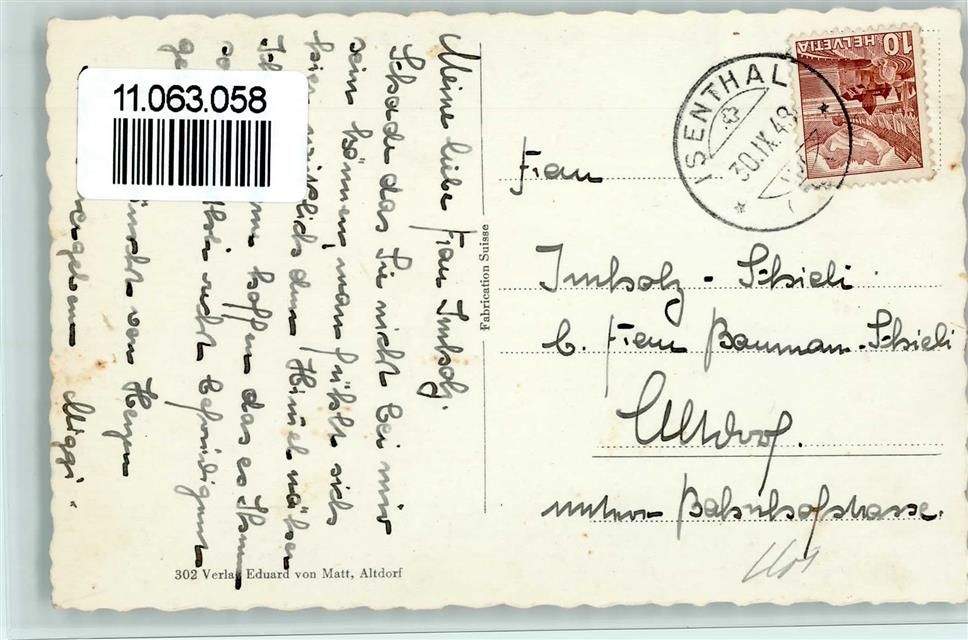 Meine liebe Frau Imholz.
Schade das Sie nicht bei mir
sein können, man fühlt sich
hier wirklich dem Himmel näher
hoffen das es Ihnen
recht befriedigend
von Herzen
ergebene Miggi.
11.063.058
ISENTHAL
30.IX.48
HELVETIA
10
Frau
Imholz-Schieli
b. Frau Baumann-Schieli
Altdorf.
untere Bahnhofstrasse.
Fabrication Suisse
302 Verlag Eduard von Matt, Altdorf